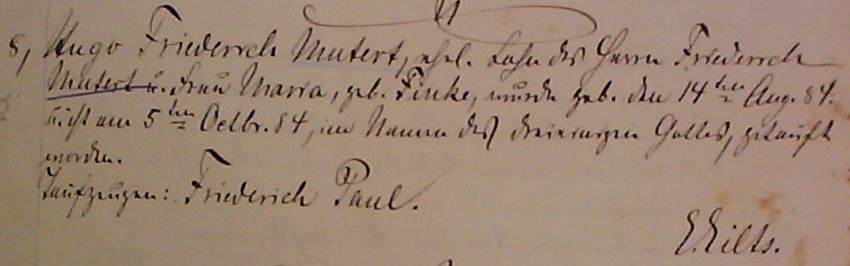 8, Hugo Friederich Mutert, ehel. Sohn des Herrn Friederich
Mutert u. Frau Maria, geb. Finke, wurde geb. den 14ten Aug. 84.
am 5ten Octbr. 84, im Namen des dreieinigen Gottes, getauft
worden.
Taufzeugen: Friederich Paul.
E. Eilts.